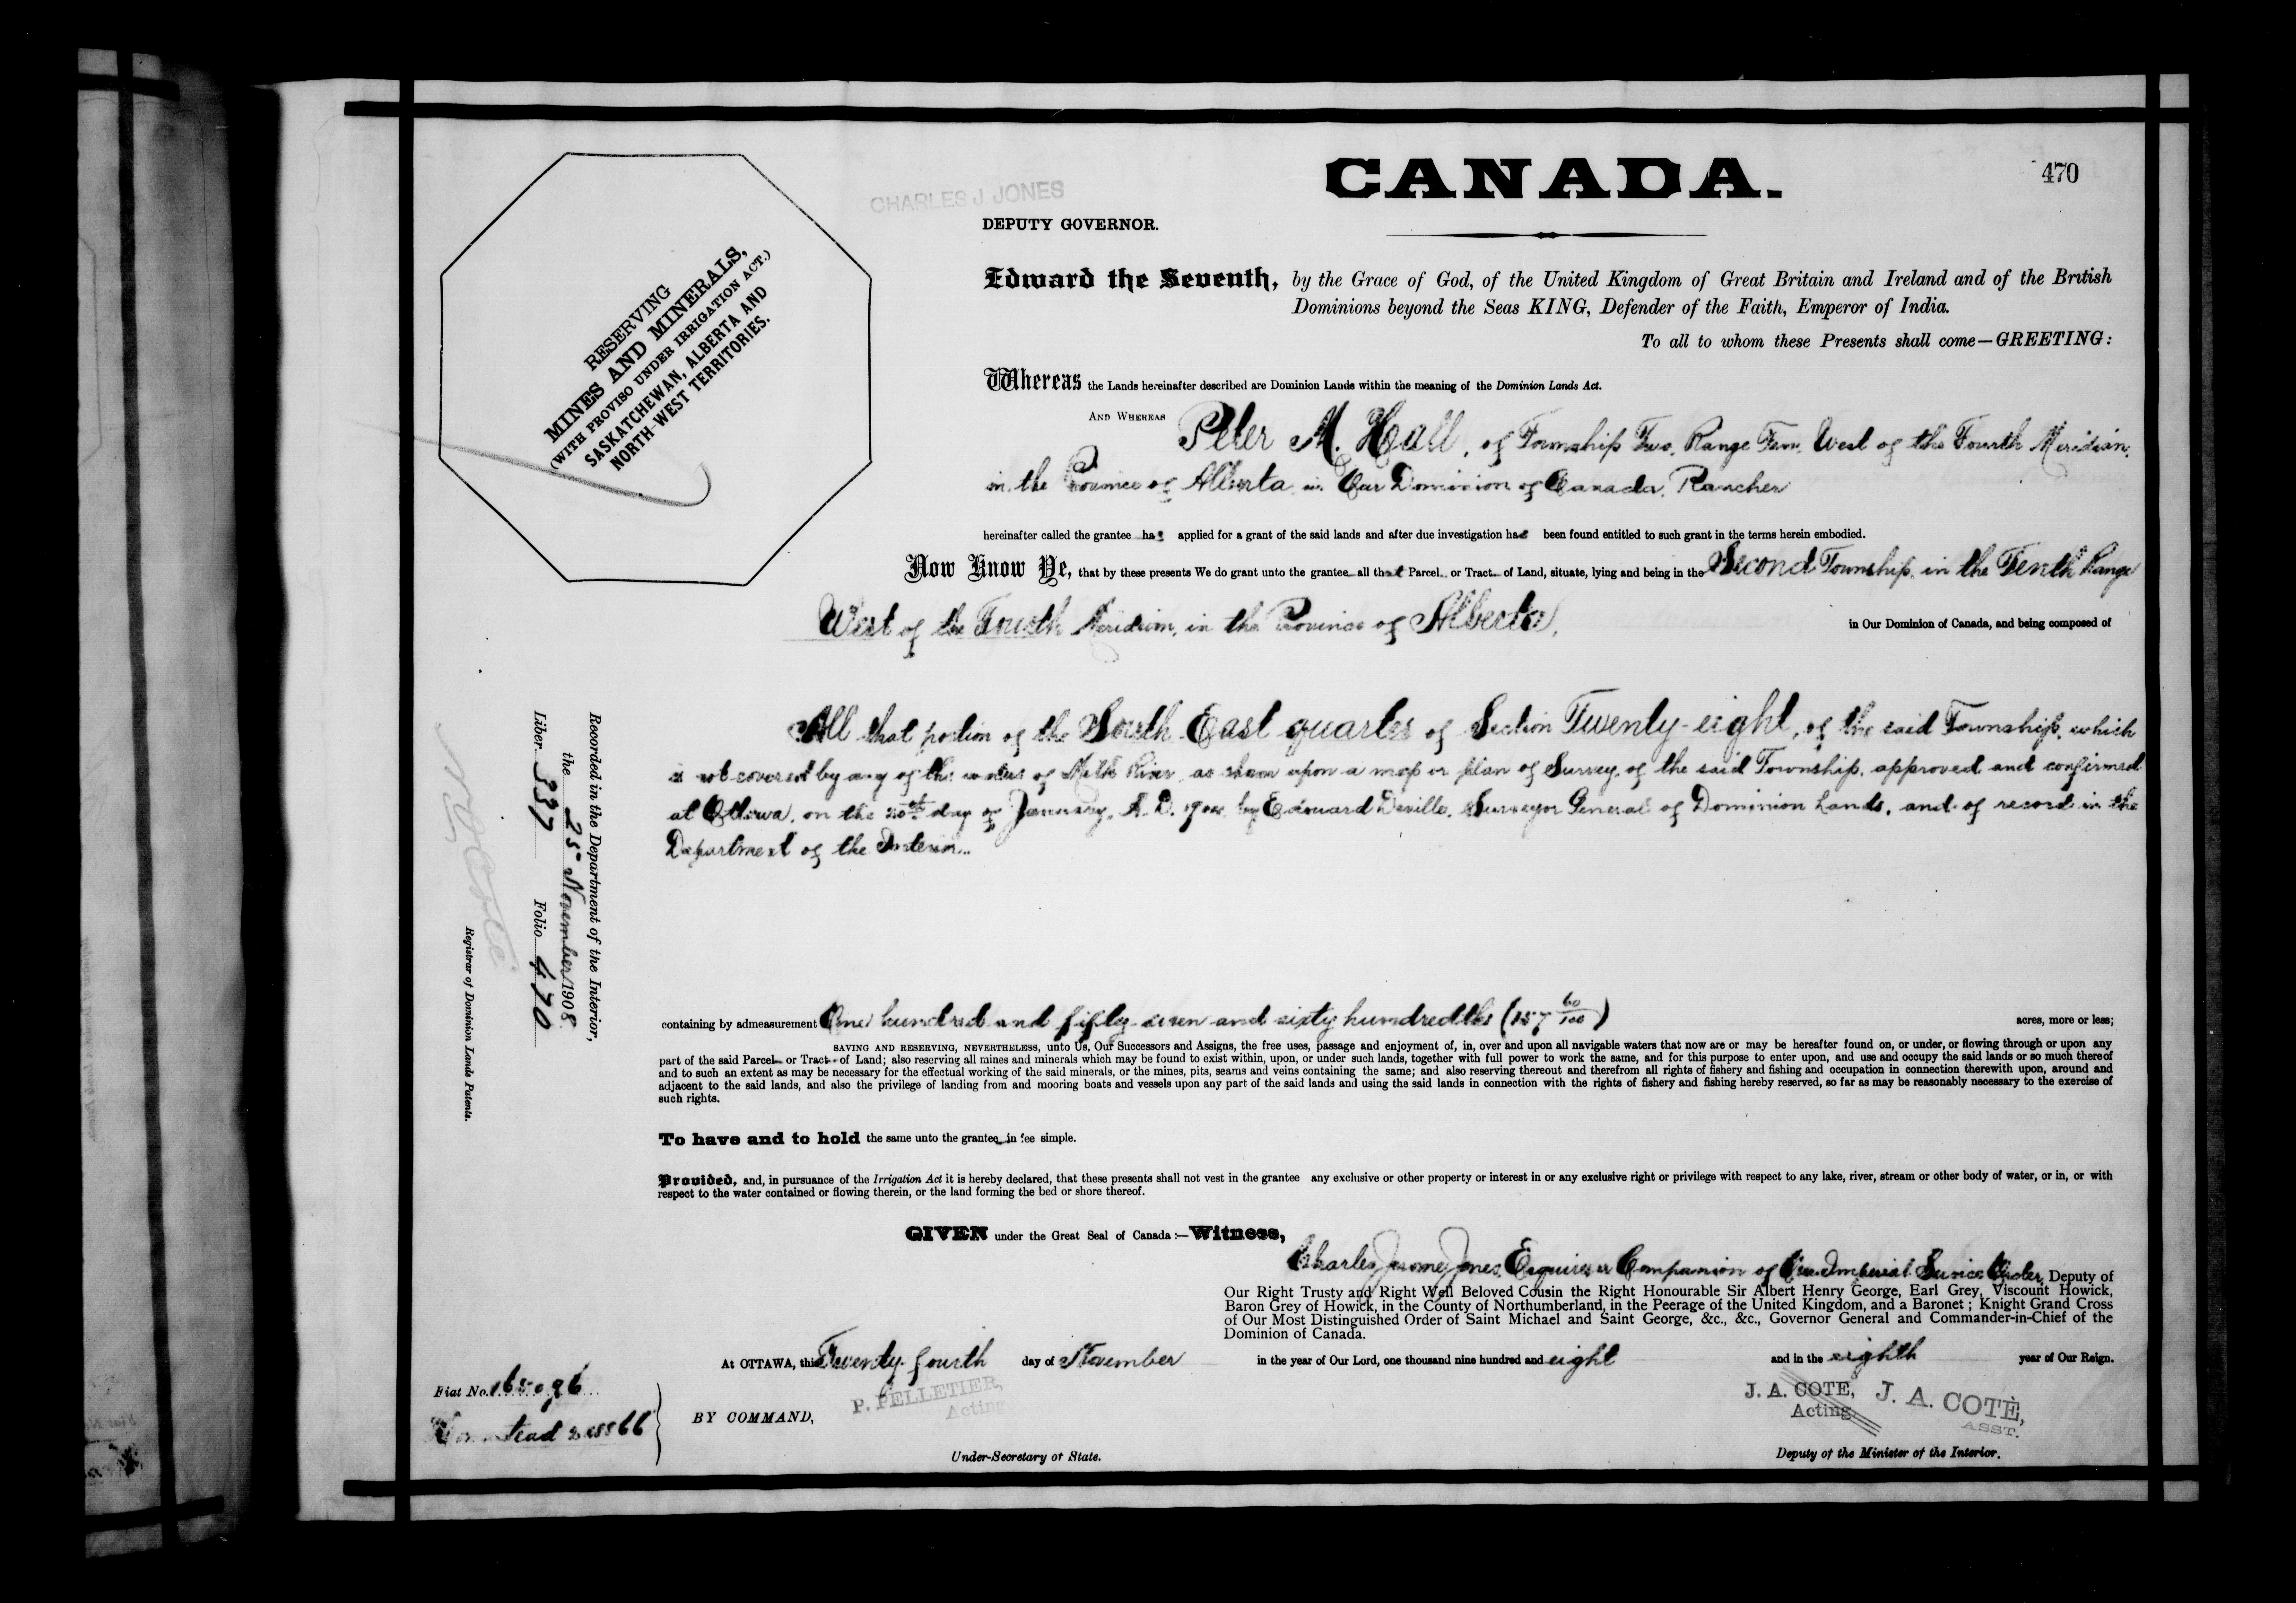 CANADA.
470
CHARLES J JONES
DEPUTY GOVERNOR.
RESERVING
MINES AND MINERALS,
(WITH PROVISO UNDER IRRIGATION ACT.)
SASKATCHEWAN, ALBERTA AND
NORTH-WEST TERRITORIES.
Edward the Seventh, by the Grace of God, of the United Kingdom of Great Britain and Ireland and of the British
Dominions beyond the Seas KING, Defender of the Faith, Emperor of India.
To all to whom these Presents shall come—GREETING:
Whereas the Lands hereinafter described are Dominion Lands within the meaning of the Dominion Lands Act.
AND WHEREAS Peter M. Hall, of Township Two, Range Ten, West of the Fourth Meridian,
in the Province of Alberta in Our Dominion of Canada, Rancher
hereinafter called the grantee has applied for a grant of the said lands and after due investigation has been found entitled to such grant in the terms herein embodied.
Now Know Ye, that by these presents We do grant unto the grantee all that Parcel or Tract of Land, situate, lying and being in the Second Township, in the Tenth Range
West of the Fourth Meridian, in the Province of Alberta, in Our Dominion of Canada, and being composed of
All that portion of the South East quarter of Section Twenty-eight, of the said Township, which
is not covered by any of the waters of Milk River, as shown upon a map or plan of Survey, of the said Township, approved and confirmed
at Ottawa, on the day of January, A. D. by Edouard Deville, Surveyor General of Dominion Lands, and of record in the
Department of the Interior.
Recorded in the Department of the Interior,
the 25 November 1908
Liber 337 Folio 470
Registrar of Dominion Lands Patents.
containing by admeasurement One hundred and fifty seven and sixty hundredths (157 60/100) acres, more or less;
SAVING AND RESERVING, NEVERTHELESS, unto Us, Our Successors and Assigns, the free uses, passage and enjoyment of, in, over and upon all navigable waters that now are or may be hereafter found on, or under, or flowing through or upon any
part of the said Parcel or Tract of Land; also reserving all mines and minerals which may be found to exist within, upon, or under such lands, together with full power to work the same, and for this purpose to enter upon, and use and occupy the said lands or so much thereof
and to such an extent as may be necessary for the effectual working of the said minerals, or the mines, pits, seams and veins containing the same; and also reserving thereout and therefrom all rights of fishery and fishing and occupation in connection therewith upon, around and
adjacent to the said lands, and also the privilege of landing from and mooring boats and vessels upon any part of the said lands and using the said lands in connection with the rights of fishery and fishing hereby reserved, so far as may be reasonably necessary to the exercise of
such rights.
To have and to hold the same unto the grantee in fee simple.
Provided, and, in pursuance of the Irrigation Act it is hereby declared, that these presents shall not vest in the grantee any exclusive or other property or interest in or any exclusive right or privilege with respect to any lake, river, stream or other body of water, or in, or with
respect to the water contained or flowing therein, or the land forming the bed or shore thereof.
GIVEN under the Great Seal of Canada:—Witness,
Charles Jerome Jones, Esquire, a Companion of Our Imperial Service Order, Deputy of
Our Right Trusty and Right Well Beloved Cousin the Right Honourable Sir Albert Henry George, Earl Grey, Viscount Howick,
Baron Grey of Howick, in the County of Northumberland, in the Peerage of the United Kingdom, and a Baronet; Knight Grand Cross
of Our Most Distinguished Order of Saint Michael and Saint George, &c., &c., Governor General and Commander-in-Chief of the
Dominion of Canada.
At OTTAWA, this Twenty-fourth day of November in the year of Our Lord, one thousand nine hundred and eight and in the eighth year of Our Reign.
Fiat No. 165096
Homestead
BY COMMAND,
P. PELLETIER,
Acting
Under-Secretary of State.
J. A. COTE,
Acting
J. A. COTÈ,
ASST.
Deputy of the Minister of the Interior.